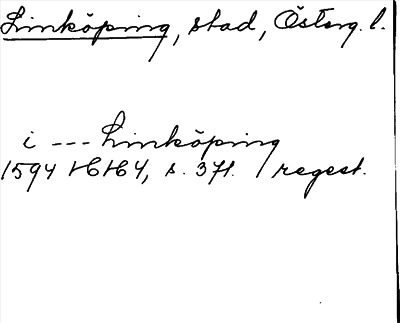 Linköping, stad, Österg. l.
i --- Linköping
1594 HH 4, s. 371. / regest.